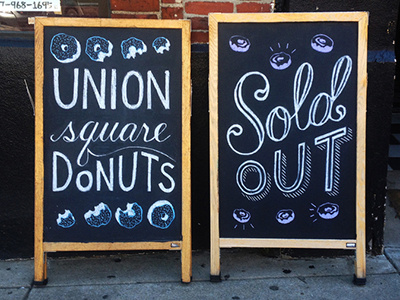 7-968-169
UNION
square
DONUTS
Sold
OUT